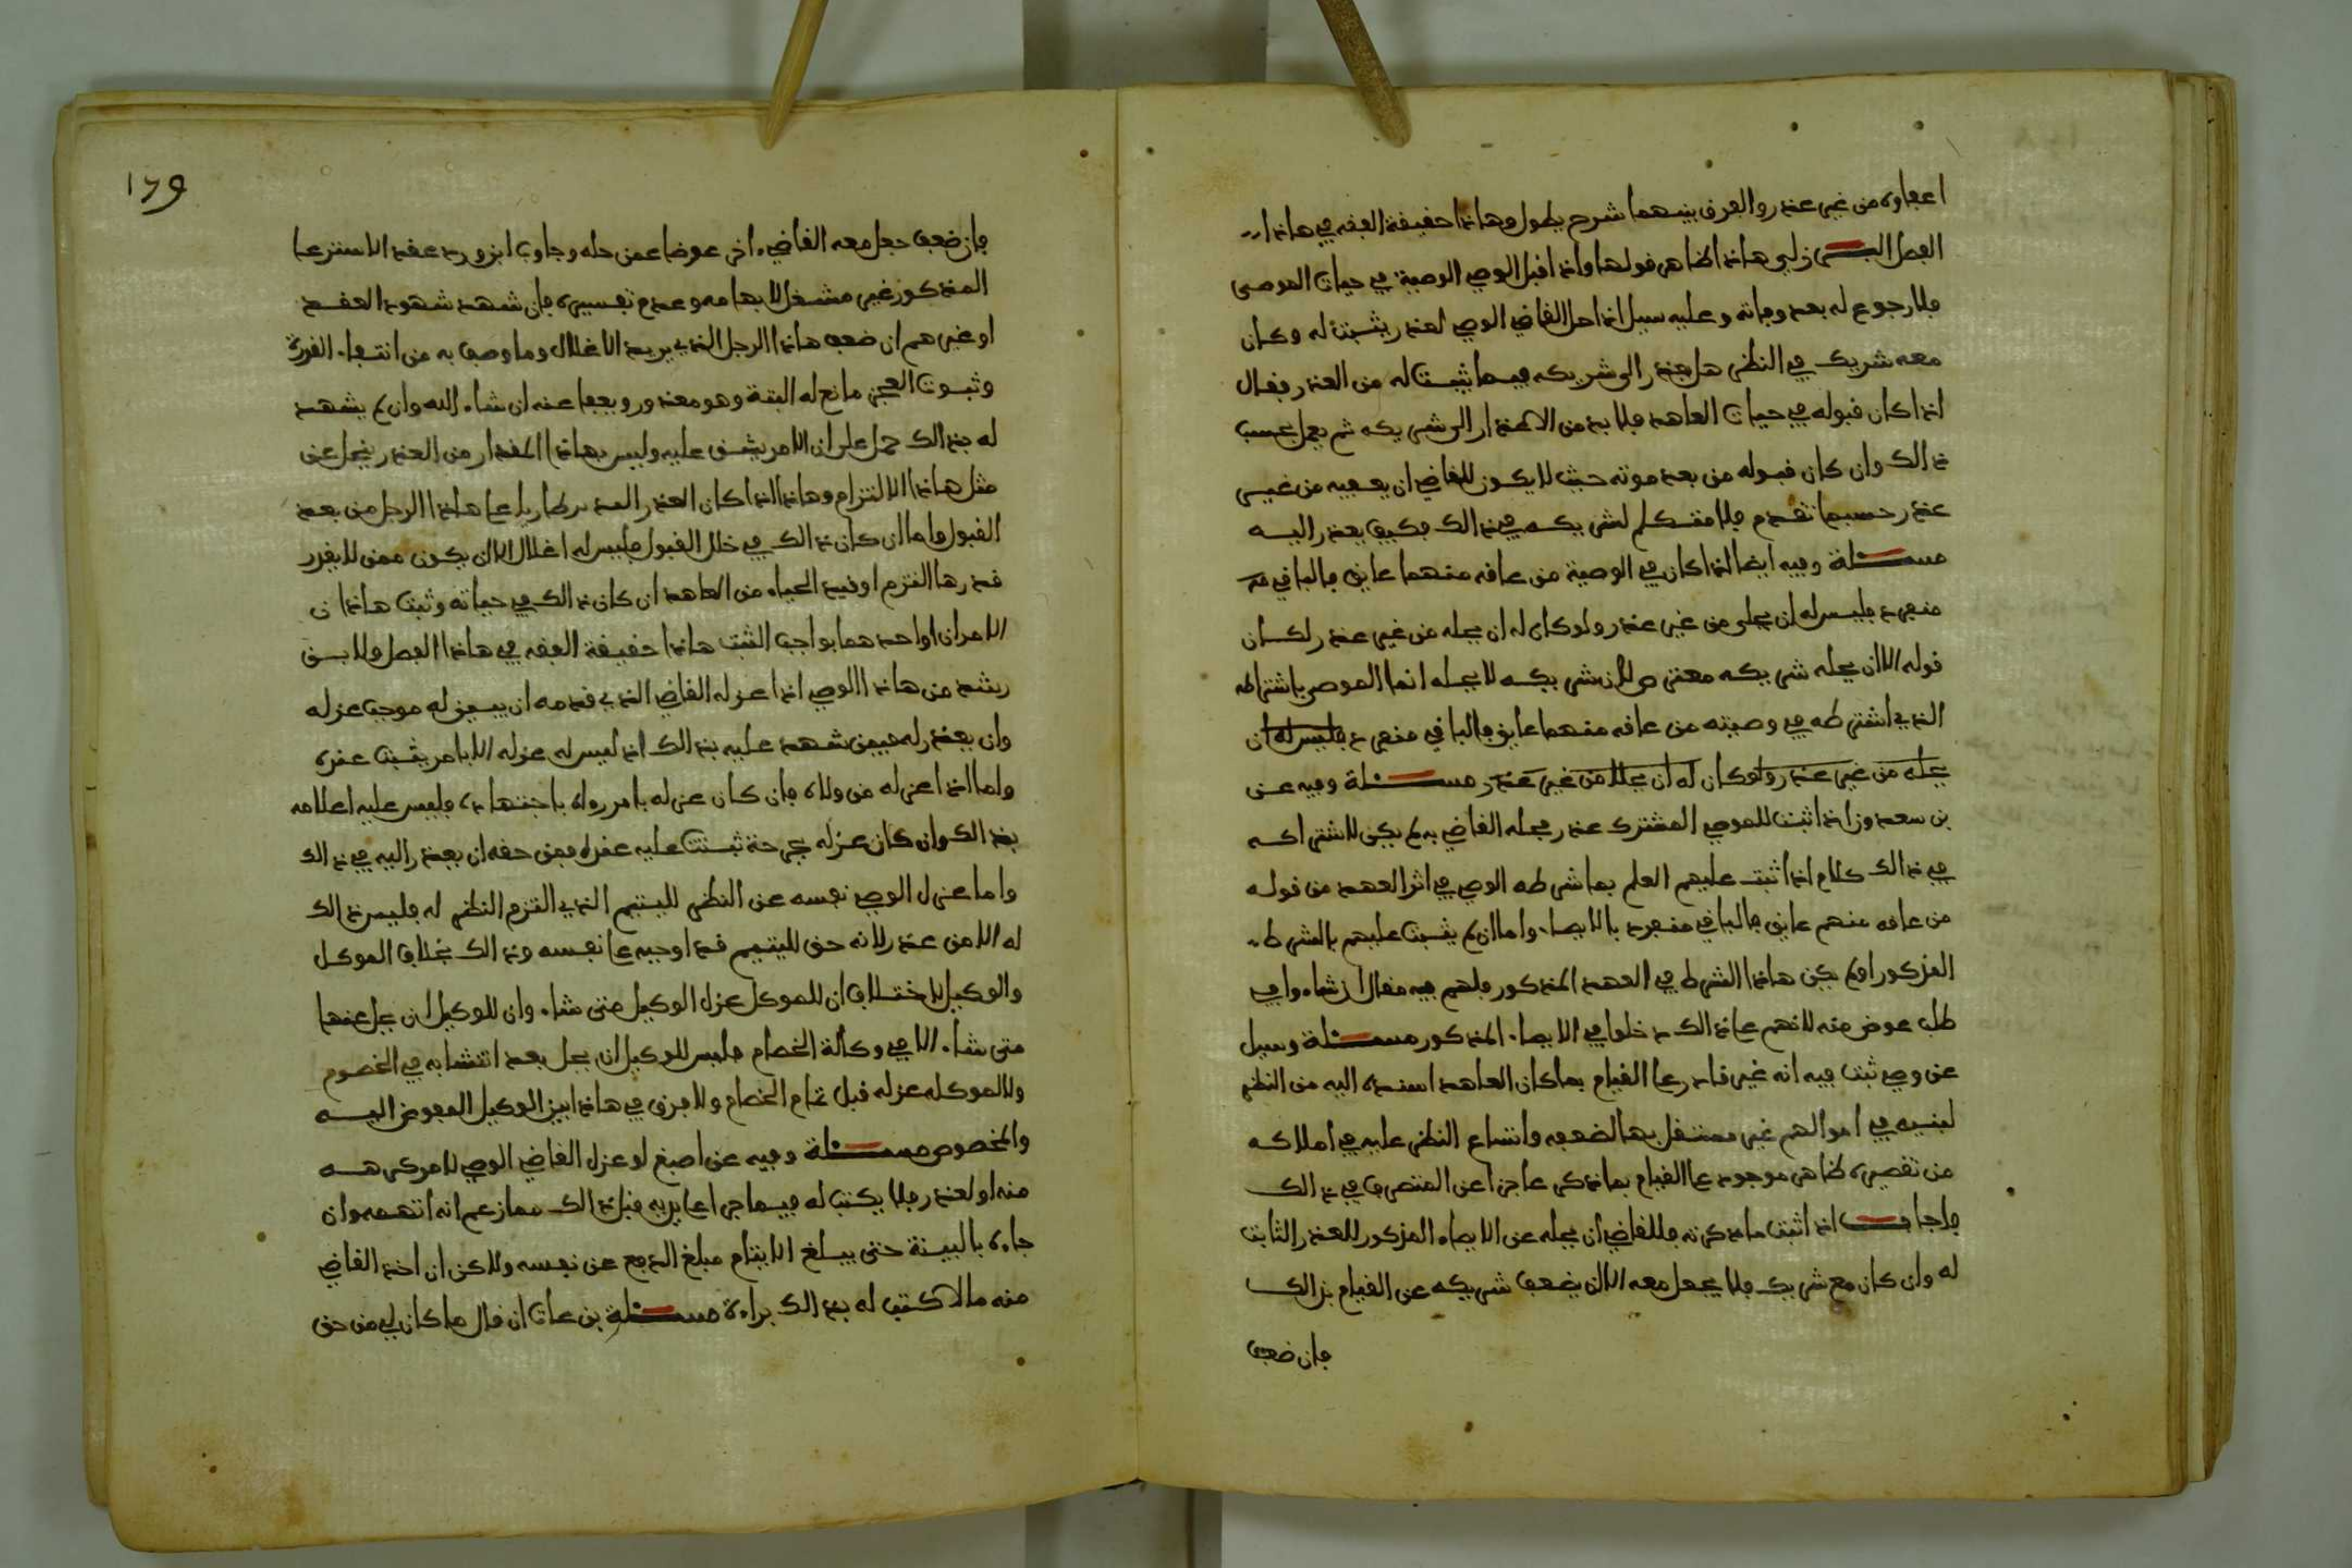 اعفاوه من غير عذر والفرق بينهما شرح يطول وهاذا حقيقة الفقه في هاذا
الفصل البرزلي هاذا كظاهر قولها واذا قبل الوصي الوصية في حيات الموصى
فلا رجوع له بعد وفاته وعليه سيل اذا حل القاضي الوصي لعذر يثبت له وكان
معه شريك في النظر هل يعذر الى شريكه فيما يثبت له من العذر فقال
اذا كان قبوله في حيات العاهد فلا بد من الاعذار الى شريكه ثم يعمل بحسب
ذالك وان كان قبوله من بعد موته حيث لا يكون للقاضي ان يعفيه من غير
عذر حسبما تقدم فلا متكلم لشريكه في ذالك فكيف يعذر اليه
مسئلة وفيه ايضا اذا كان في الوصية من عاقه منهما عايق فالباقي
منفرد فليس له ان يحلى من غير عذر ولو كان له ان يحله من غير عذر لكان
قوله الا ان يحله شريكه معترض لان شريكه لا يحله انما الموصى باشتراطه
الذي اشترطه في وصيته من عاقه منهما عايق فالباقي منفرد فليس له ان
يحله من غير عذر ولو كان له ان يحلا من غير عذر مسئلة وفيه عن
بن سعدون اذا ثبت للموصي المشترك عذر فحله القاضي به لم يكن لاشتراكه
في ذالك كلام اذا ثبت عليهم العلم بما شرطه الوصي في اثر العهد من قوله
من عاقه منهم عايق فالباقي منفرد بالايصاء واما ان لم يثبت عليهم بالشرط
المذكور او لم يكن هاذا الشرط في العهد المذكور فلهم فيه مقال ان شاء وا في
طلب عوض منه لانهم على ذالك دخلوا في الايصاء المذكور مسئلة وسيل
عن وصي ثبت فيه انه غير قادر على القيام بما كان العاهد اسنده اليه من النظر
لبنيه في اموالهم غير مستقل بها لضعفه واتساع النظر عليه في املاكه
من تقصيره ظاهر موجود على القيام بما ذكر عاجزا عن المتصرف في ذالك
فاجاب اذا ثبت ما ذكرته فللقاضي ان يحله عن الايصاء المذكور للعذر الثابت
له وان كان مع شريك فلا يجعل معه الا ان يضعف شريكه عن القيام بذالك
فان ضعف
١٦٩
فان ضعف جعل معه القاضي اخر عوضا عمن حله وجاوب ابن ورد عقد الاسترعا
المذكور غير مشغل لابهامه وعدم تفسيره فان شهد شهود العقد
او غيرهم ان ضعف هاذا الرجل الذي يريد الانحلال وما وصف به من انتفاء القدرة
وثبوت العجز مانع له البتة وهو معذور ويعفا عنه ان شاء الله وان لم يشهد
له بذالك حمل على ان الامر يشق عليه وليس بهاذا المقدار من العذر ينحل عن
مثل هاذا الالتزام وهاذا اذا كان العذر العد بر طاريا على هاذا الرجل من بعد
القبول واما ان كان ذالك في خلال القبول فليس له انحلال الا ان يكون ممن لا يقدر
قدر ها التزم او قيد الحياء من العاهد ان كان ذالك في حياته وثبت هاذان
الامران او احدهما بواجب الثبت هاذا حقيقة الفقه في هاذا الفصل ولابن
رشد من هاذا الوصي اذا عزله القاضي الذي قدمه ان يبين له موجب عزله
وان يعذر له فيمن شهد عليه بذالك اذ ليس له عزله الا بامر يثبت عنده
واما اذا عزله من ولاه فان كان عزله بامر رءاه باجتهاده فليس عليه اعلامه
بذالك وان كان عزله بجرحة ثبتت عليه عنده فمن حقه ان يعذر اليه في ذالك
واما عزل الوصي نفسه عن النظر لليتيم الذي التزم النظر له فليس ذالك
له الا من عذر لانه حق لليتيم قد اوجبه على نفسه وذالك بخلاف الموكل
والوكيل لاختلاف ان للموكل عزل الوكيل متى شاء وان للوكيل ان يحل عنها
متى شاء الا في وكالة الخصام فليس للوكيل ان يحل بعد انتشابه في الخصوم
ولا لموكله عزله قبل تمام الخصام ولا فرق في هاذا بين الوكيل المفوض اليه
والمخصوص مسئلة وفيه عن اصبغ لو عزل القاضي الوصي لامر كرهه
منه او لعذر فلا يكتب له فيما جرا على يديه قبل ذالك مما زعم انه اتهمه وان
جاءه بالبينة حتى يبلغ الايتام مبلغ الدفع عن نفسه ولاكن ان اخذ القاضي
منه مالا كتب له بذالك براءة مسئلة بن عات ان قال ما كان لي من حق